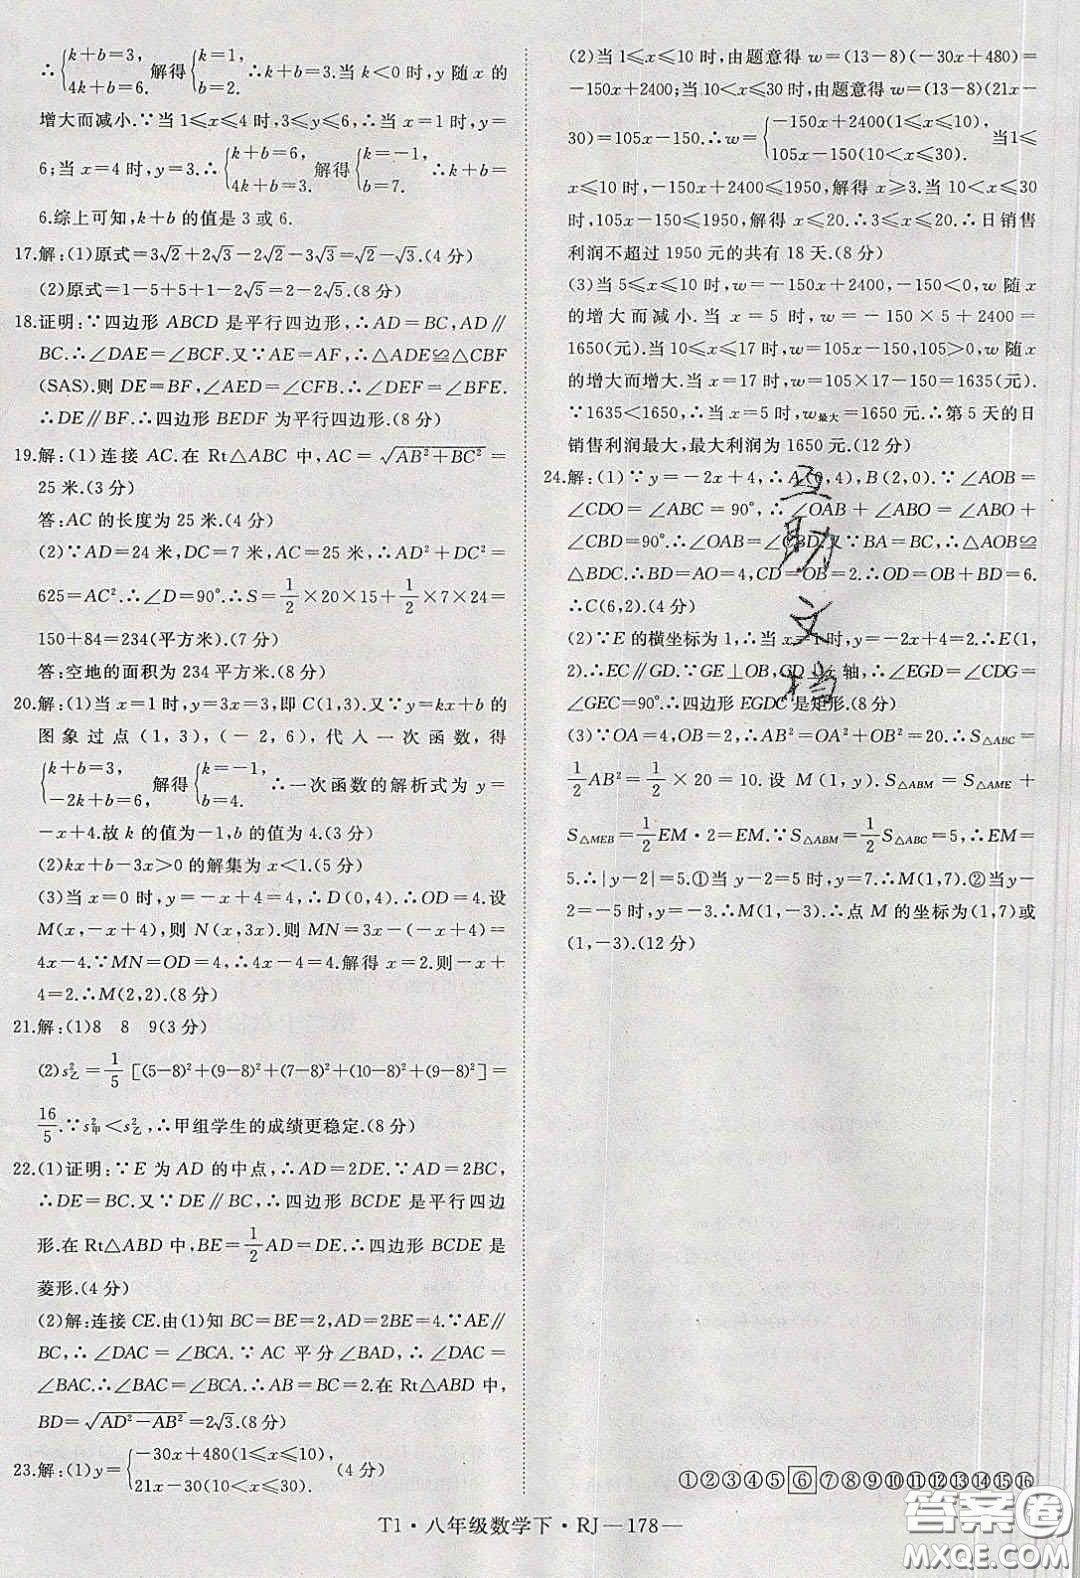 ∴{k+b=3, 4k+b=6. 解得{k=1, b=2. ∴k+b=3.当 k<0 时,y 随 x 的
增大而减小.∵当 1≤x≤4 时,3≤y≤6,∴当 x=1 时,y=
6;当 x=4 时,y=3.∴{k+b=6, 4k+b=3. 解得{k=-1, b=7. ∴k+b=
6.综上可知,k+b 的值是 3 或 6.
17.解:(1)原式=3√2+2√3-2√2-3√3=√2-√3.(4 分)
(2)原式=1-5+5+1-2√5=2-2√5.(8 分)
18.证明:∵四边形 ABCD 是平行四边形,∴AD=BC,AD∥
BC.∴∠DAE=∠BCF.又∵AE=AF,∴△ADE≌△CBF
(SAS).则 DE=BF,∠AED=∠CFB.∴∠DEF=∠BFE.
∴DE∥BF.∴四边形 BEDF 为平行四边形.(8 分)
19.解:(1)连接 AC.在 Rt△ABC 中,AC=√(AB²+BC²)=
25 米.(3 分)
答:AC 的长度为 25 米.(4 分)
(2)∵AD=24 米,DC=7 米,AC=25 米,∴AD²+DC²=
625=AC².∴∠D=90°.∴S=1/2×20×15+1/2×7×24=
150+84=234(平方米).(7 分)
答:空地的面积为 234 平方米.(8 分)
20.解:(1)当 x=1 时,y=3x=3,即 C(1,3).又∵y=kx+b 的
图象过点(1,3),(-2,6),代入一次函数,得
{k+b=3, -2k+b=6. 解得{k=-1, b=4. ∴一次函数的解析式为 y=
-x+4.故 k 的值为-1,b 的值为 4.(3 分)
(2)kx+b-3x>0 的解集为 x<1.(5 分)
(3)当 x=0 时,y=-x+4=4,∴D(0,4).∴OD=4.设
M(x,-x+4),则 N(x,3x).则 MN=3x-(-x+4)=
4x-4.∵MN=OD=4,∴4x-4=4.解得 x=2.则-x+
4=2.∴M(2,2).(8 分)
21.解:(1)8 8 9(3 分)
(2)s²乙=1/5[(5-8)²+(9-8)²+(7-8)²+(10-8)²+(9-8)²]=
16/5.∵s²甲<s²乙,∴甲组学生的成绩更稳定.(8 分)
22.(1)证明:∵E 为 AD 的中点,∴AD=2DE.∵AD=2BC,
∴DE=BC.又∵DE∥BC,∴四边形 BCDE 是平行四边
形.在 Rt△ABD 中,BE=1/2AD=DE.∴四边形 BCDE 是
菱形.(4 分)
(2)解:连接 CE.由(1)知 BC=BE=2,AD=2BE=4.∵AE∥
BC,∴∠DAC=∠BCA.∵AC 平分∠BAD,∴∠DAC=
∠BAC.∴∠BAC=∠BCA.∴AB=BC=2.在 Rt△ABD 中,
BD=√(AD²-AB²)=2√3.(8 分)
23.解:(1)y={-30x+480(1≤x≤10), 21x-30(10<x≤30). (4 分)
(2)当 1≤x≤10 时,由题意得 w=(13-8)(-30x+480)=
-150x+2400;当 10<x≤30 时,由题意得 w=(13-8)(21x-
30)=105x-150.∴w={-150x+2400(1≤x≤10), 105x-150(10<x≤30). 当 1≤
x≤10 时,-150x+2400≤1950,解得 x≥3.当 10<x≤30
时,105x-150≤1950,解得 x≤20.∴3≤x≤20.∴日销售
利润不超过 1950 元的共有 18 天.(8 分)
(3)当 5≤x≤10 时,w=-150x+2400,-150<0,w 随 x
的增大而减小.当 x=5 时,w=-150×5+2400=
1650(元).当 10<x≤17 时,w=105x-150,105>0,w 随 x
的增大而增大.当 x=17 时,w=105×17-150=1635(元).
∵1635<1650,∴当 x=5 时,w最大=1650 元.∴第 5 天的日
销售利润最大,最大利润为 1650 元.(12 分)
24.解:(1)∵y=-2x+4,∴A(0,4),B(2,0).∵∠AOB=
∠CDO=∠ABC=90°,∴∠OAB+∠ABO=∠ABO+
∠CBD=90°.∴∠OAB=∠CBD.又∵BA=BC,∴△AOB≌
△BDC.∴BD=AO=4,CD=OB=2.∴OD=OB+BD=6.
∴C(6,2).(4 分)
(2)∵E 的横坐标为 1,∴当 x=1 时,y=-2x+4=2.∴E(1,
2).∴EC∥GD.∵GE⊥OB,CD⊥x 轴,∴∠EGD=∠CDG=
∠GEC=90°.∴四边形 EGDC 是矩形.(8 分)
(3)∵OA=4,OB=2,∴AB²=OA²+OB²=20.∴S△ABC=
1/2AB²=1/2×20=10.设 M(1,y).S△ABM=S△AME+
S△MEB=1/2EM·2=EM.∵S△ABM=1/2S△ABC=5,∴EM=
5.∴|y-2|=5.①当 y-2=5时,y=7.∴M(1,7).②当 y-
2=-5 时,y=-3.∴M(1,-3).∴点 M 的坐标为(1,7)或
(1,-3).(12 分)
互助文档
①②③④⑤⑥⑦⑧⑨⑩⑪⑫⑬⑭⑮⑯
T1·八年级数学下·RJ—178—
答案圈
MXQE.COM